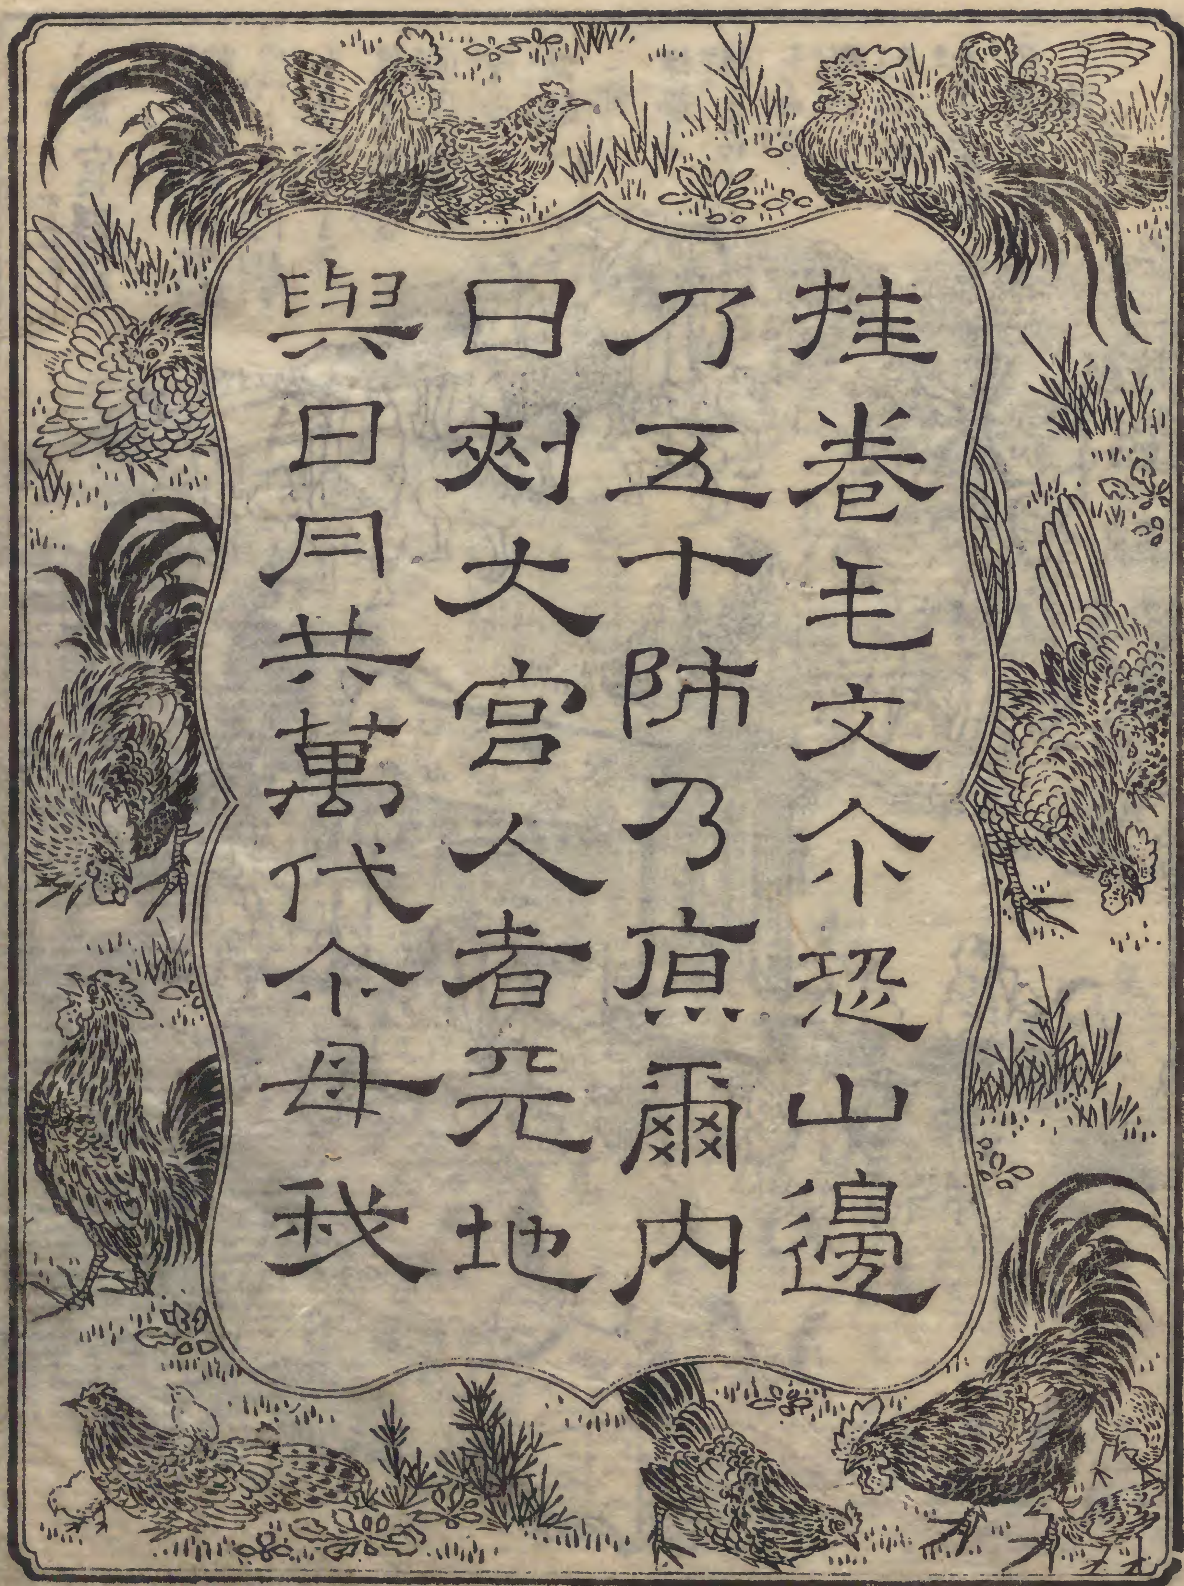 挂卷毛文尒恐山邊
乃五十師乃原爾内
日刺大宮人者天地
與日月共萬代尒母我